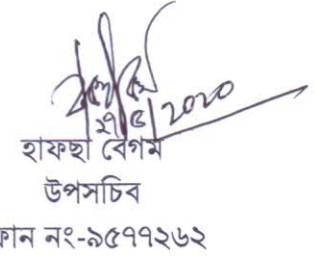 ২৭/৫/২০২০
হাফছা বেগম
উপসচিব
ফোন নং-৯৫৭৭২৬২